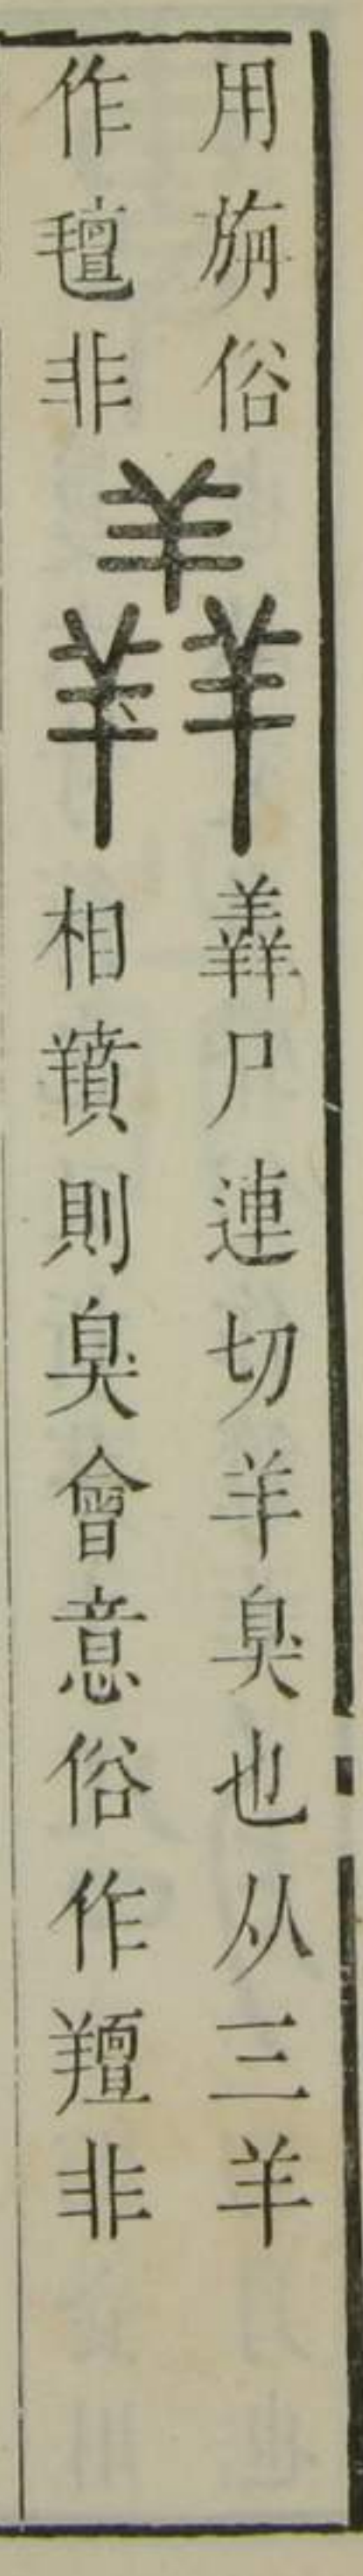 用旃俗
作氊非
羴
羴尸連切羊臭也从三羊
相羵則臭會意俗作羶非